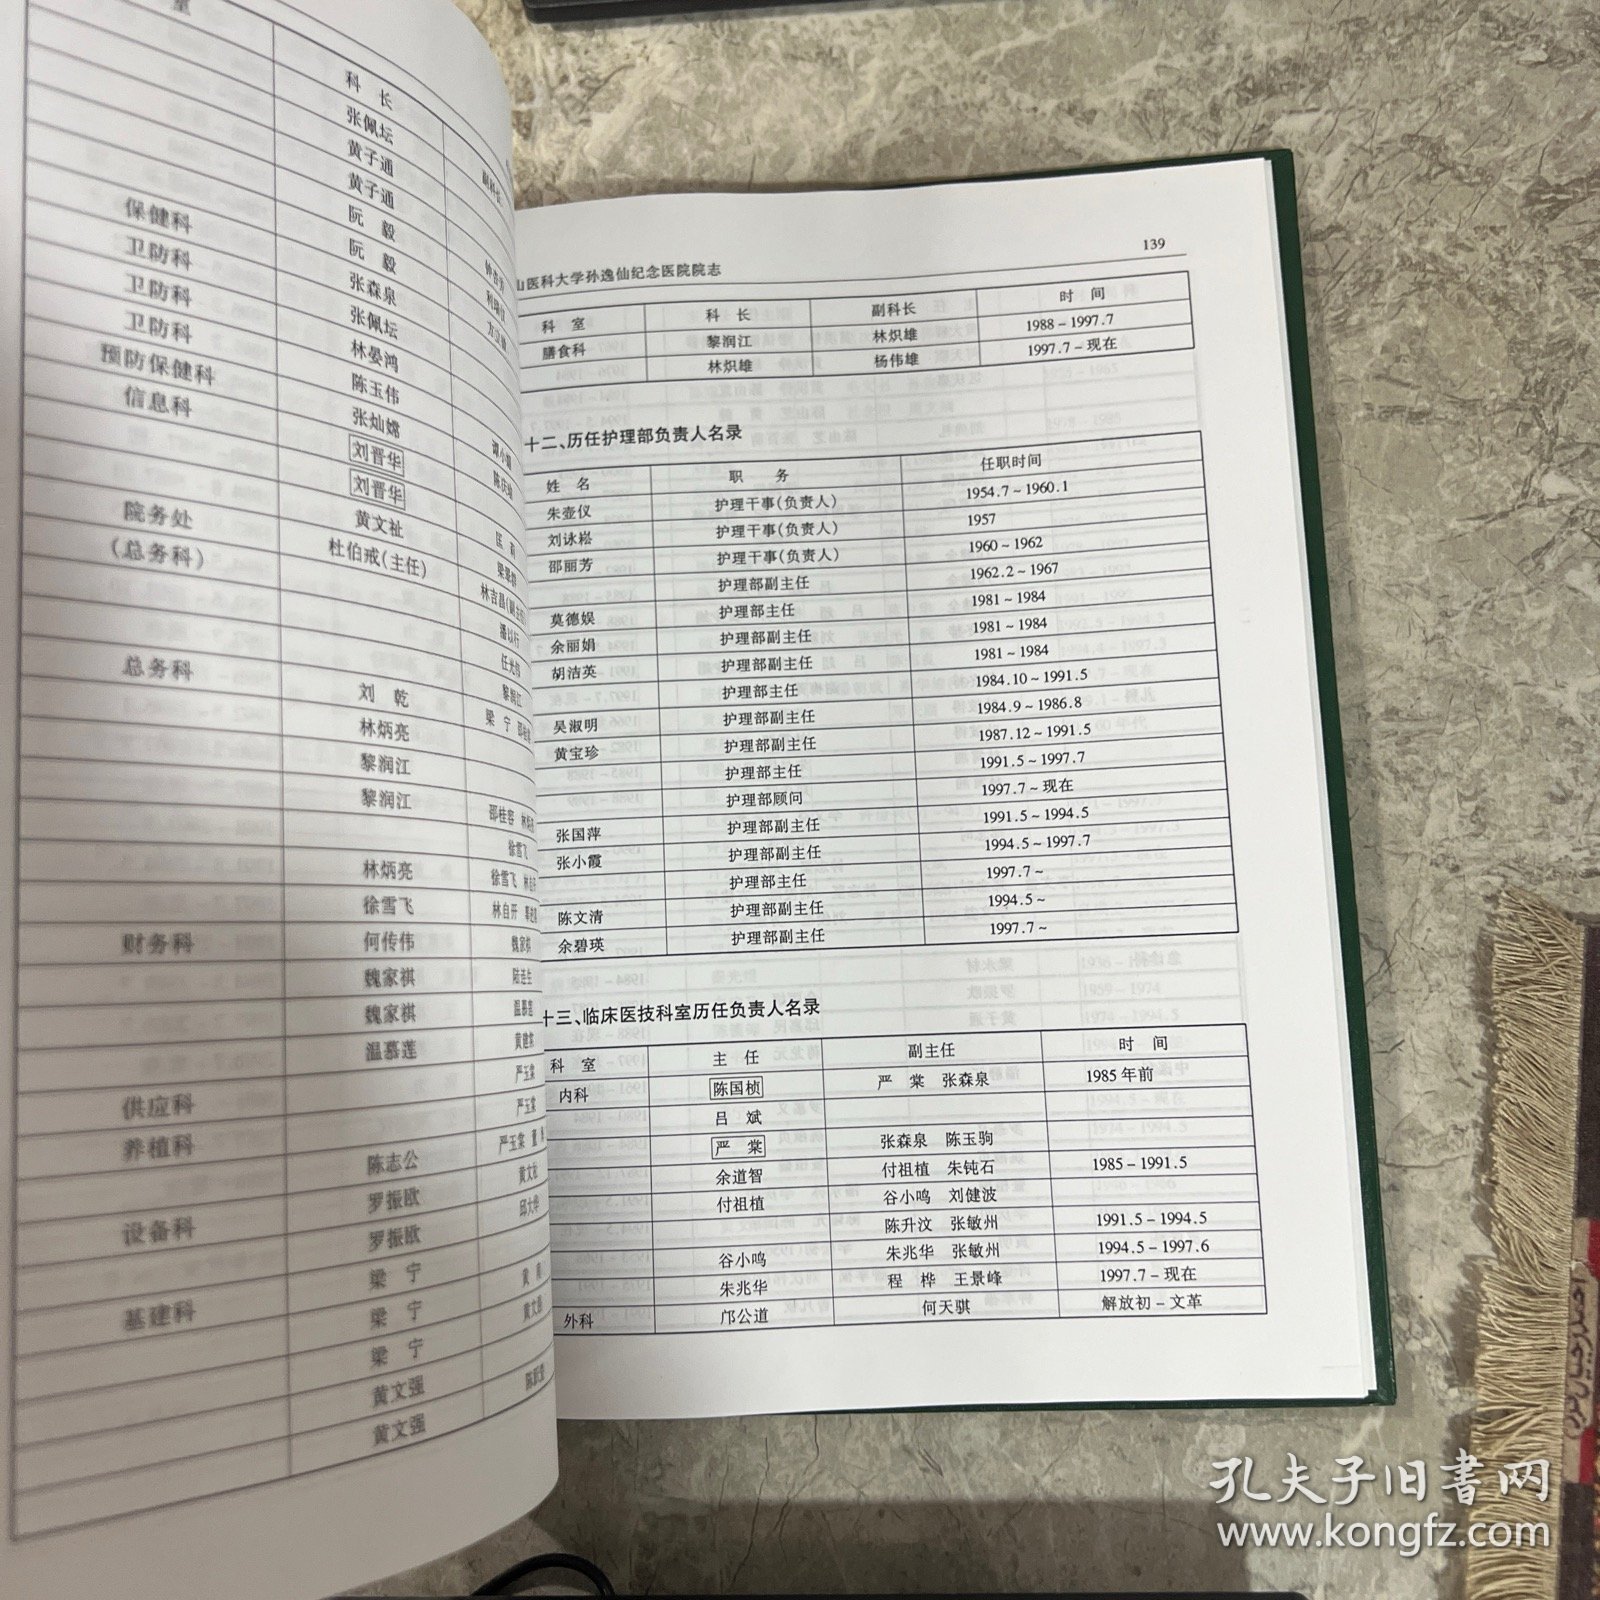 科 长
张佩坛
黄子通
副科长
黄子通
保健科 阮 毅
卫防科 阮 毅
卫防科 张森泉
卫防科 张佩坛
预防保健科 林晏鸿
信息科 陈玉伟
张灿嫦
刘晋华
刘晋华
院务处 黄文祉
(总务科) 杜伯戒(主任)
林吉昌(副主任)
潘以石
任光伟
总务科 黎润江
刘 乾
林炳亮
黎润江
黎润江
徐雪飞
林炳亮 徐雪飞
徐雪飞 林自开
财务科 何传伟 魏家祺
魏家祺 陆连生
魏家祺 温慕莲
温慕莲
严玉棠
供应科 严玉棠
养植科
陈志公 严玉棠
罗振欧 黄文祉
设备科 罗振欧 邱大华
梁 宁
基建科 梁 宁
梁 宁 黄文强
黄文强
黄文强
山医科大学孙逸仙纪念医院院志 139
科 室 科 长 副科长 时 间
膳食科 黎润江 林炽雄 1988-1997.7
林炽雄 杨伟雄 1997.7-现在
十二、历任护理部负责人名录
姓 名 职 务 任职时间
朱壶仪 护理干事(负责人) 1954.7~1960.1
刘咏崧 护理干事(负责人) 1957
邵丽芳 护理干事(负责人) 1960~1962
护理部副主任 1962.2~1967
莫德娱 护理部主任 1981~1984
余丽娟 护理部副主任 1981~1984
胡洁英 护理部副主任 1981~1984
护理部主任 1984.10~1991.5
吴淑明 护理部副主任 1984.9~1986.8
黄宝珍 护理部副主任 1987.12~1991.5
护理部主任 1991.5~1997.7
护理部顾问 1997.7~现在
张国萍 护理部副主任 1991.5~1994.5
张小霞 护理部副主任 1994.5~1997.7
护理部主任 1997.7~
陈文清 护理部副主任 1994.5~
余碧瑛 护理部副主任 1997.7~
十三、临床医技科室历任负责人名录
科 室 主 任 副主任 时 间
内科 陈国桢 严 棠 张森泉 1985年前
吕 斌
严 棠 张森泉 陈玉驹
余道智 付祖植 朱钝石 1985-1991.5
付祖植 谷小鸣 刘健波
陈升汶 张敏州 1991.5-1994.5
谷小鸣 朱兆华 张敏州 1994.5-1997.6
朱兆华 程 桦 王景峰 1997.7-现在
外科 邝公道 何天骐 解放初-文革
孔夫子旧书网
www.kongfz.com